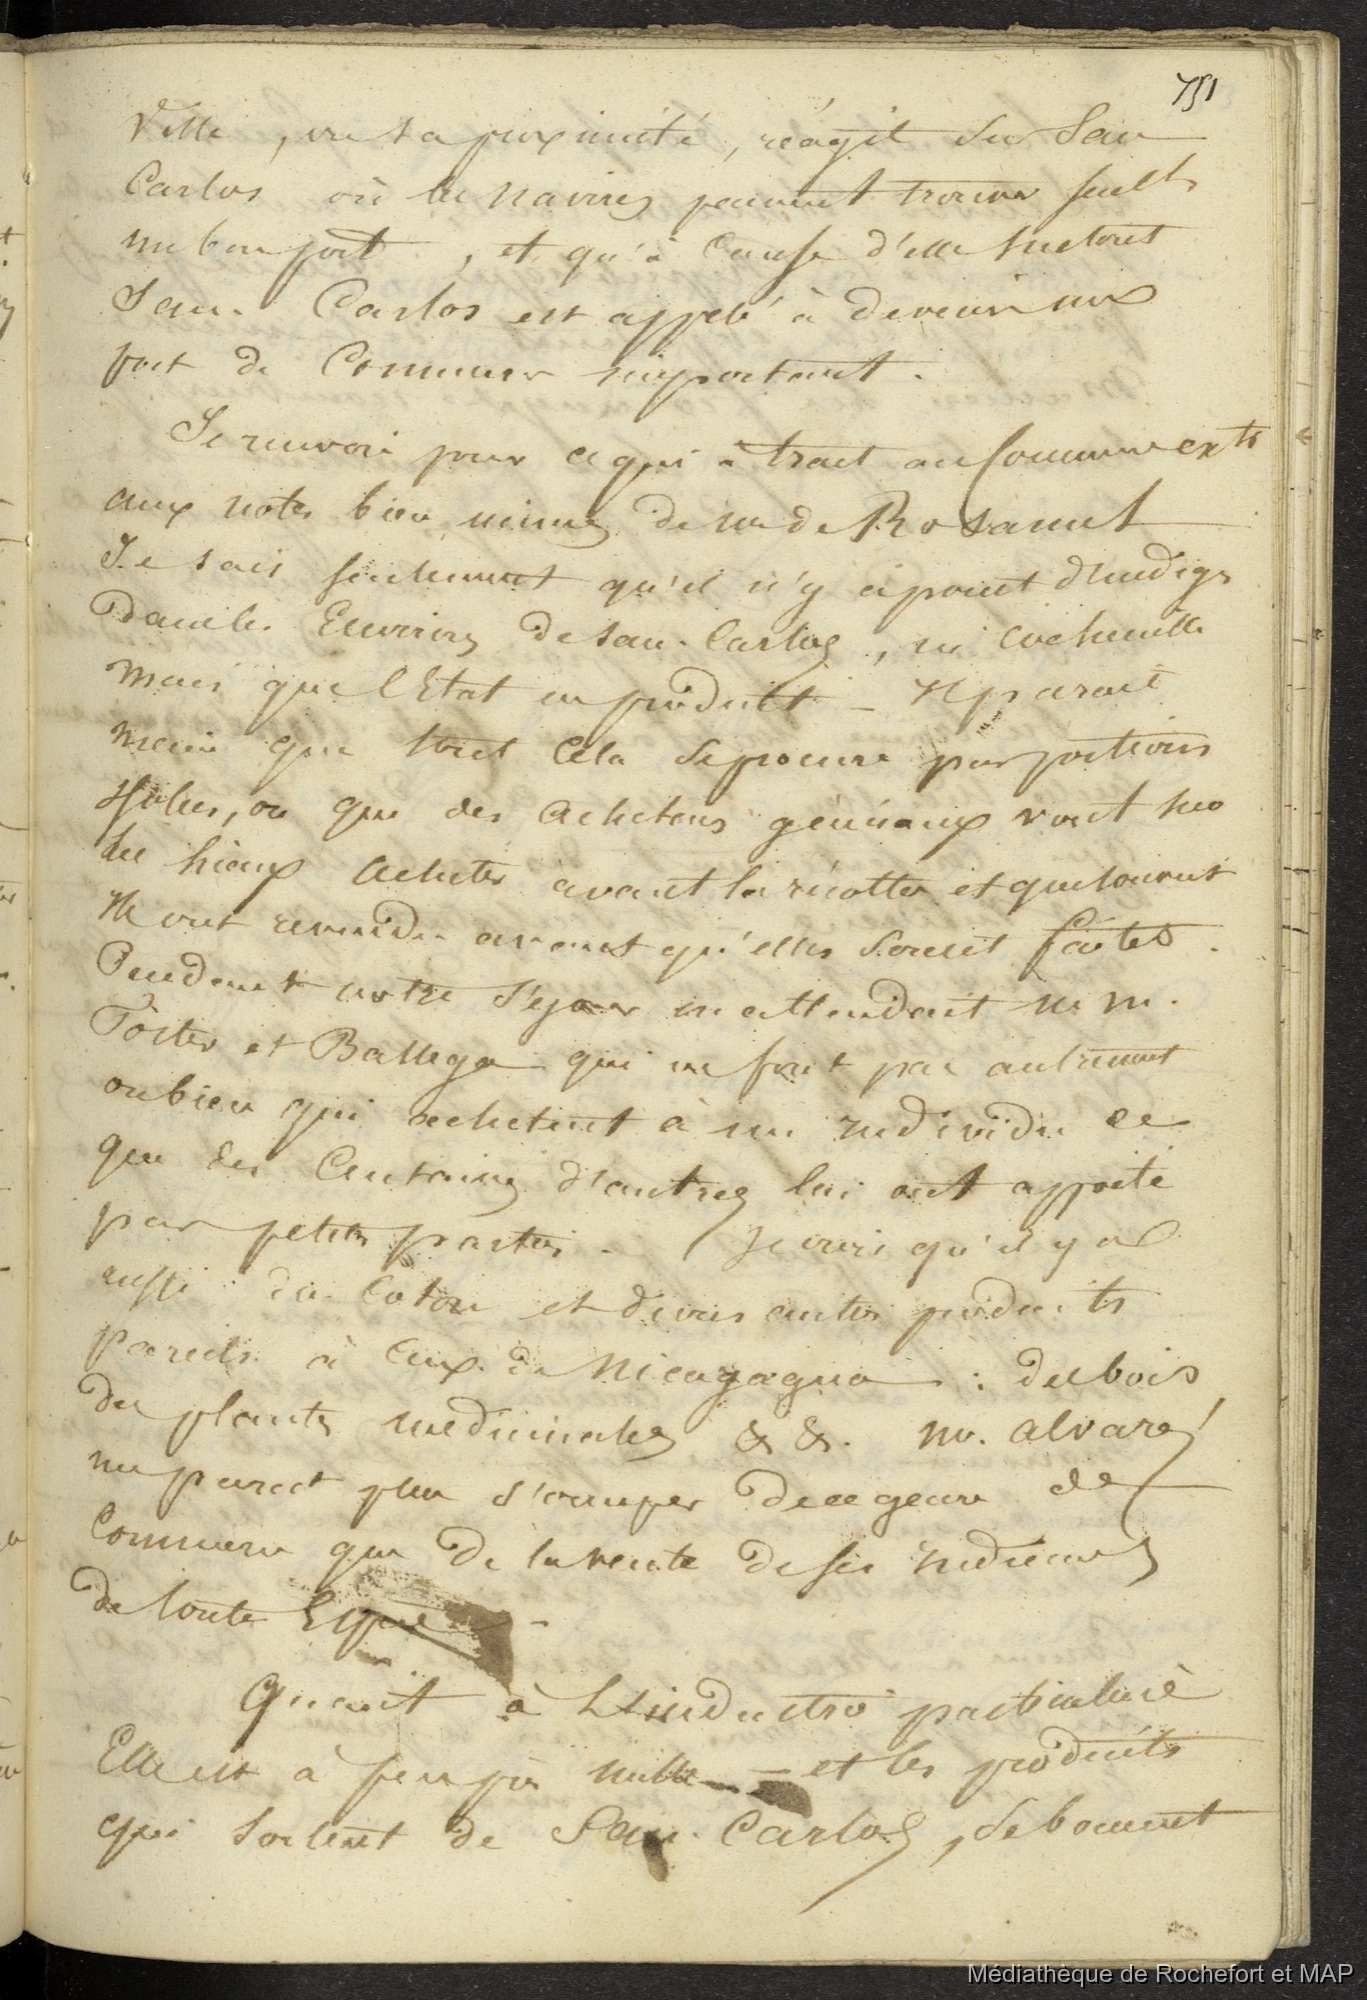 751
Ville, vu sa proximité, réagit sur San
Carlos où les navires peuvent trouver seults
un bon port, et qu'à cause d'elle surtout
San. Carlos est appelé à devenir un
port de Commerce important.
Je renvoie pour ce qui a trait au Commerce extr
aux notes bien de mr de Rosamel
Je sais seulement qu'il n'y a point d'Indigo
dans les Environs de San. Carlos, ni cochenille
mais que l'Etat en produit – Il parait
même que tout cela se procure par portions
isolées, ou que des acheteurs généraux vont sur
les lieux acheter avant la récolte et que souvent
Ils vont revendre avant qu'elles soient faites.
Pendant notre séjour on attendait un m.
Foster et Ballega qui ne font pas autrement
ou bien qui achetent à un individu ce
que des Centaines d'autres lui ont apporté
par petites parties. – Je crois qu'il y a
aussi du Coton et divers autres produits
pareils à Ceux de Nicaragua : du bois
des plantes medicinales & &. m. Alvarez
ne parait plus s'occuper de ce genre de
Commerce que de la vente de ses
de toute Espèce –
Quant à L'industrie particulière
Elle est à peu près nulle – et les produits
qui sortent de San. Carlos, se bornent
Médiathèque de Rochefort et MAP